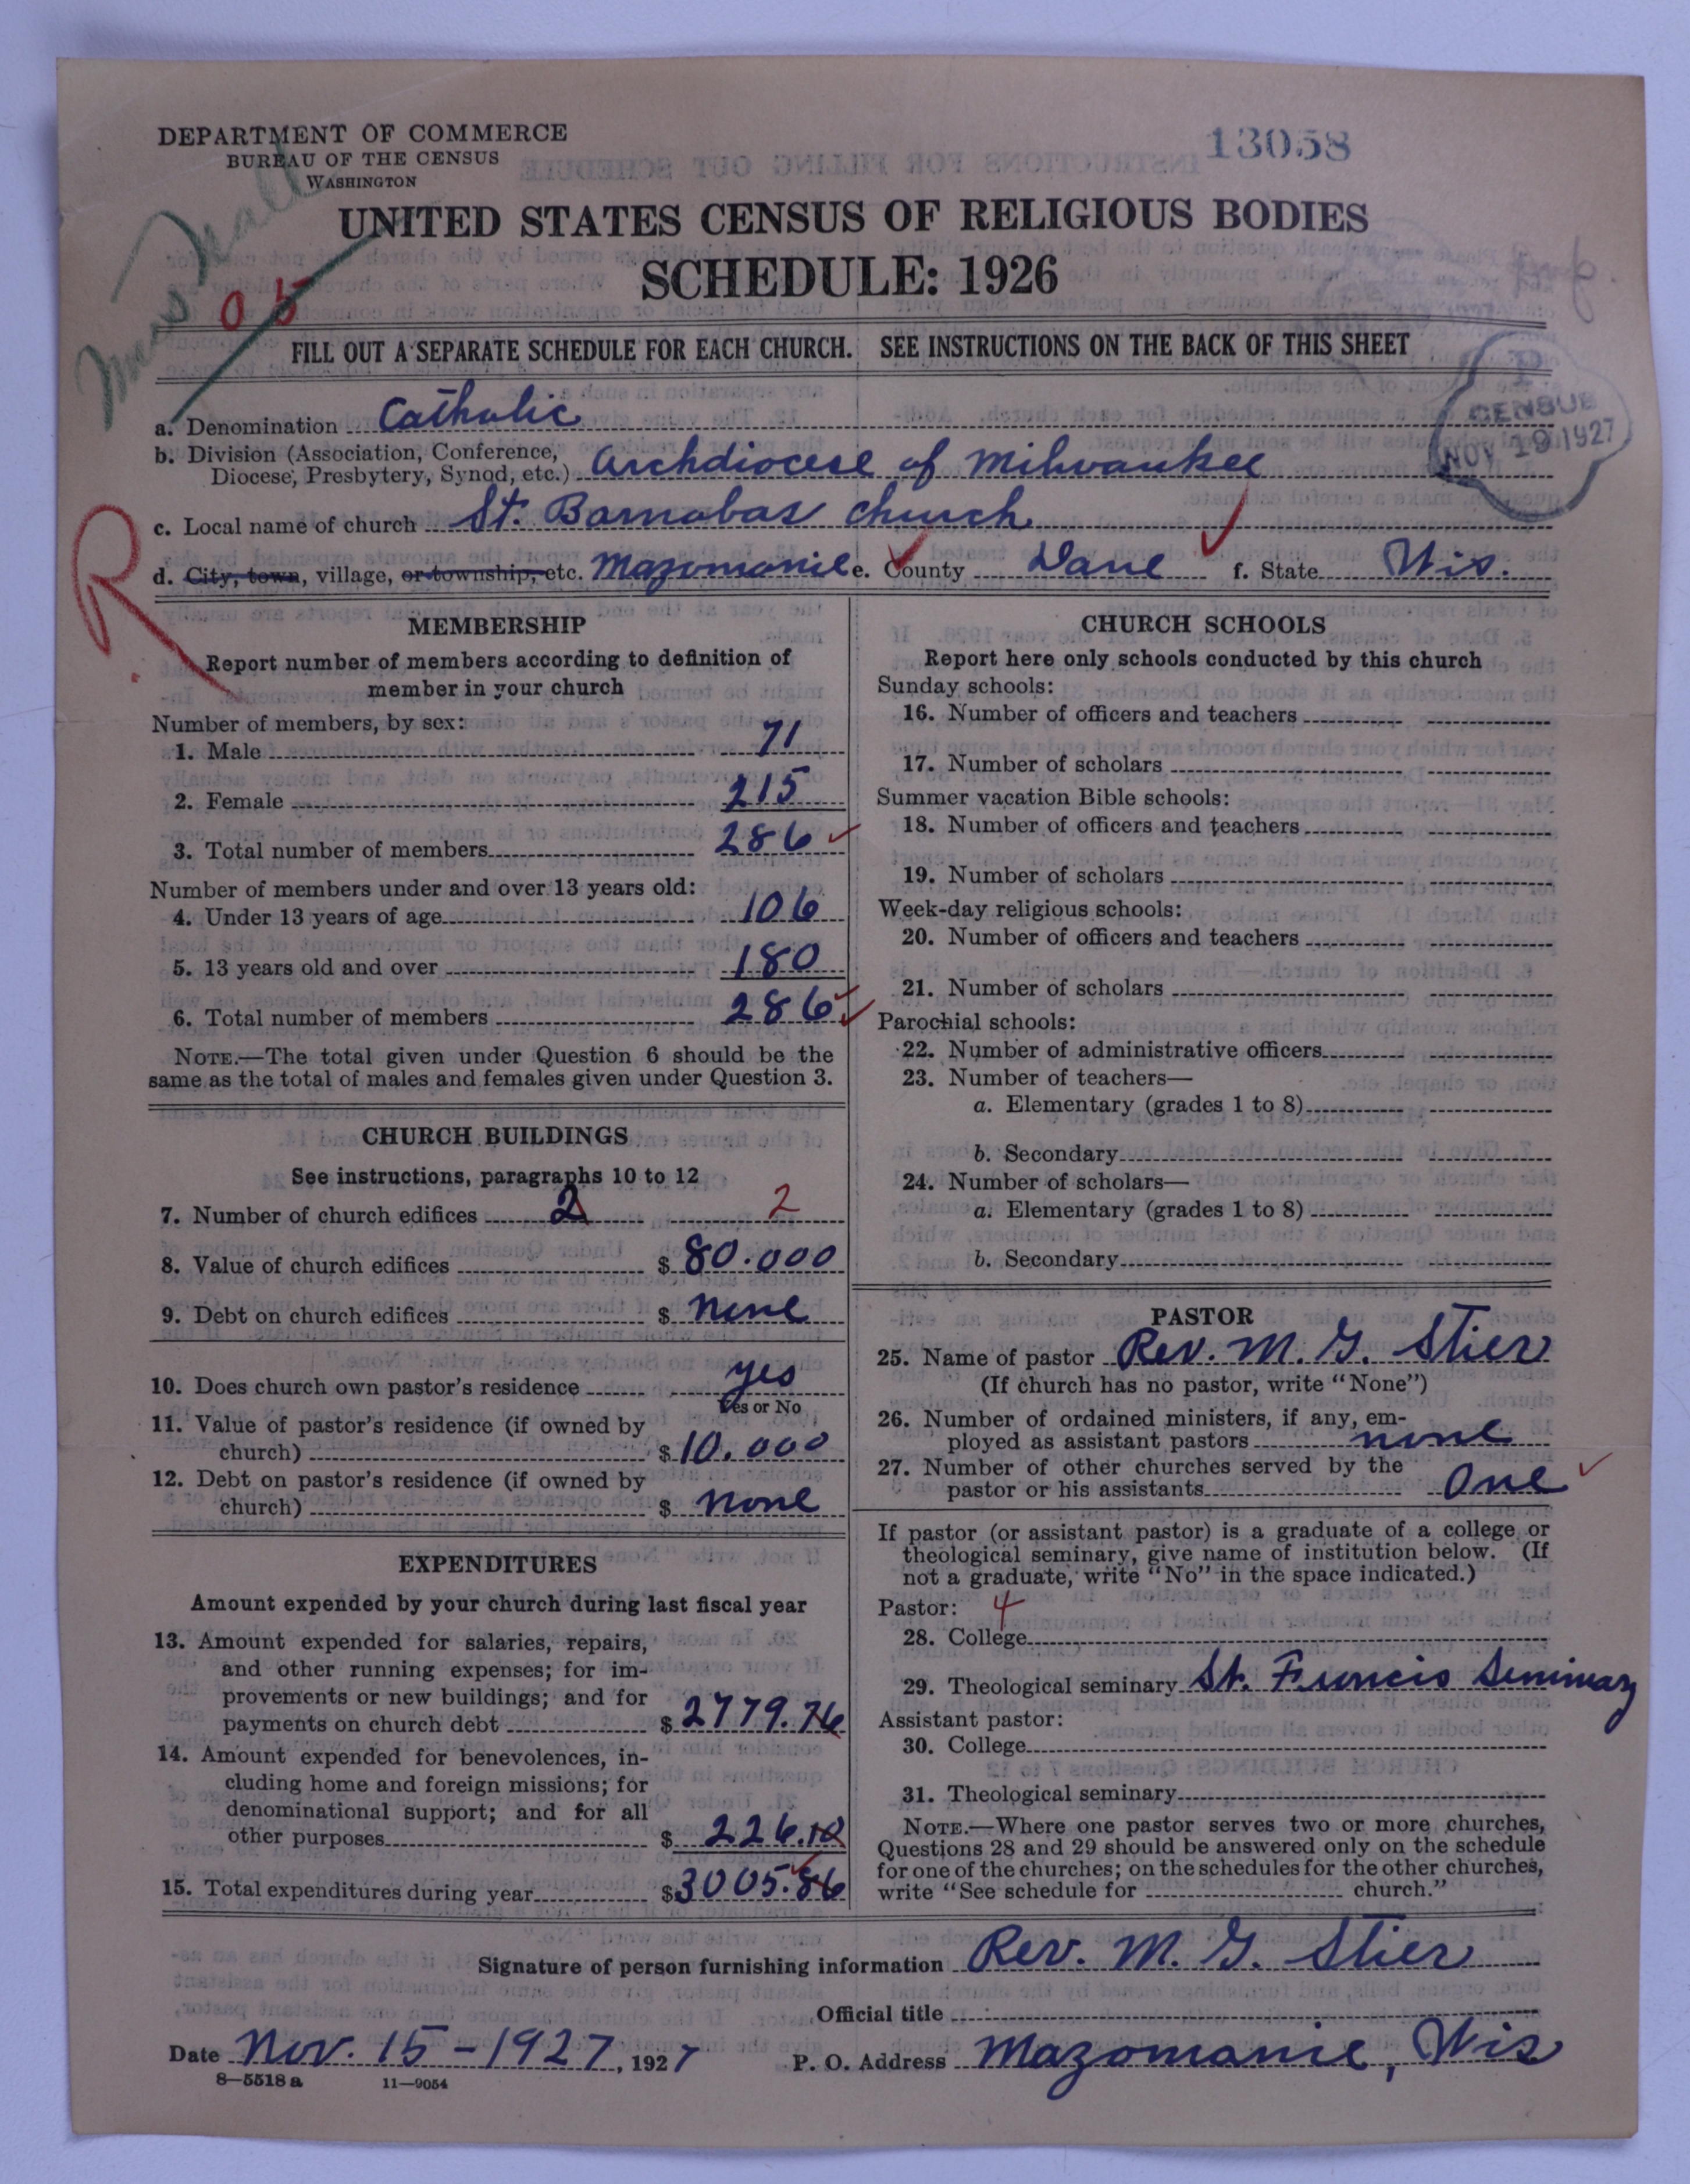 DEPARTMENT OF COMMERCE
BUREAU OF THE CENSUS
WASHINGTON
13058
UNITED STATES CENSUS OF RELIGIOUS BODIES
SCHEDULE: 1926
05
FILL OUT A SEPARATE SCHEDULE FOR EACH CHURCH. SEE INSTRUCTIONS ON THE BACK OF THIS SHEET
P
CENSUS
NOV 19 1927
a. Denomination Catholic
b. Division (Association, Conference,
Diocese, Presbytery, Synod, etc.) Archdiocese of Milwaukee
c. Local name of church St. Barnabas church
R
d. City, town, village, or township, etc. Mazomanie e. County Dane f. State Wis.
MEMBERSHIP
Report number of members according to definition of
member in your church
Number of members, by sex:
1. Male 71
2. Female 215
3. Total number of members 286
Number of members under and over 13 years old:
4. Under 13 years of age 106
5. 13 years old and over 180
6. Total number of members 286
NOTE.—The total given under Question 6 should be the
same as the total of males and females given under Question 3.
CHURCH BUILDINGS
See instructions, paragraphs 10 to 12
7. Number of church edifices 2 2
8. Value of church edifices $ 80.000
9. Debt on church edifices $ none
10. Does church own pastor's residence yes
Yes or No
11. Value of pastor's residence (if owned by
church) $ 10.000
12. Debt on pastor's residence (if owned by
church) $ none
EXPENDITURES
Amount expended by your church during last fiscal year
13. Amount expended for salaries, repairs,
and other running expenses; for im-
provements or new buildings; and for
payments on church debt $ 2779.76
14. Amount expended for benevolences, in-
cluding home and foreign missions; for
denominational support; and for all
other purposes $ 226.10
15. Total expenditures during year $ 3005.86
CHURCH SCHOOLS
Report here only schools conducted by this church
Sunday schools:
16. Number of officers and teachers
17. Number of scholars
Summer vacation Bible schools:
18. Number of officers and teachers
19. Number of scholars
Week-day religious schools:
20. Number of officers and teachers
21. Number of scholars
Parochial schools:
22. Number of administrative officers
23. Number of teachers—
a. Elementary (grades 1 to 8)
b. Secondary
24. Number of scholars—
a. Elementary (grades 1 to 8)
b. Secondary
PASTOR
25. Name of pastor Rev. M. G. Stier
(If church has no pastor, write "None")
26. Number of ordained ministers, if any, em-
ployed as assistant pastors none
27. Number of other churches served by the
pastor or his assistants One
If pastor (or assistant pastor) is a graduate of a college or
theological seminary, give name of institution below. (If
not a graduate, write "No" in the space indicated.)
Pastor: 4
28. College
29. Theological seminary St. Francis Seminary
Assistant pastor:
30. College
31. Theological seminary
NOTE.—Where one pastor serves two or more churches,
Questions 28 and 29 should be answered only on the schedule
for one of the churches; on the schedules for the other churches,
write "See schedule for church."
Signature of person furnishing information Rev. M. G. Stier
Official title
Date Nov. 15 - 1927, 1927 P. O. Address Mazomanie, Wis
8—5518a 11—9054